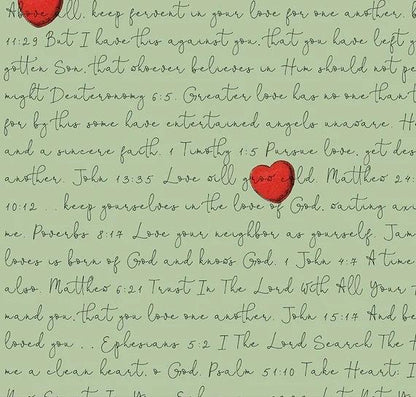 Above all, keep fervent in your love for one another.
11:29 But I have this against you, that you have left y
gotten Son, that whoever believes in Him should not pe
might Deuteronomy 6:5. Greater love has no one than t
for by this some have entertained angels unaware. H
and a sincere faith. 1 Timothy 1:5 Pursue love, yet des
another. John 13:35 Love will grow cold. Matthew 24:
10:12 . . . keep yourselves in the love of God, waiting anxi
me. Proverbs 8:17 Love your neighbor as yourself. Jam
loves is born of God and knows God. 1 John 4:7 A time
also. Matthew 6:21 Trust In The Lord With All Your
mand you, that you love one another. John 15:17 And be
loved you . . Ephesians 5:2 I The Lord Search The H
me a clean heart, o God, Psalm 51:10 Take Heart: I